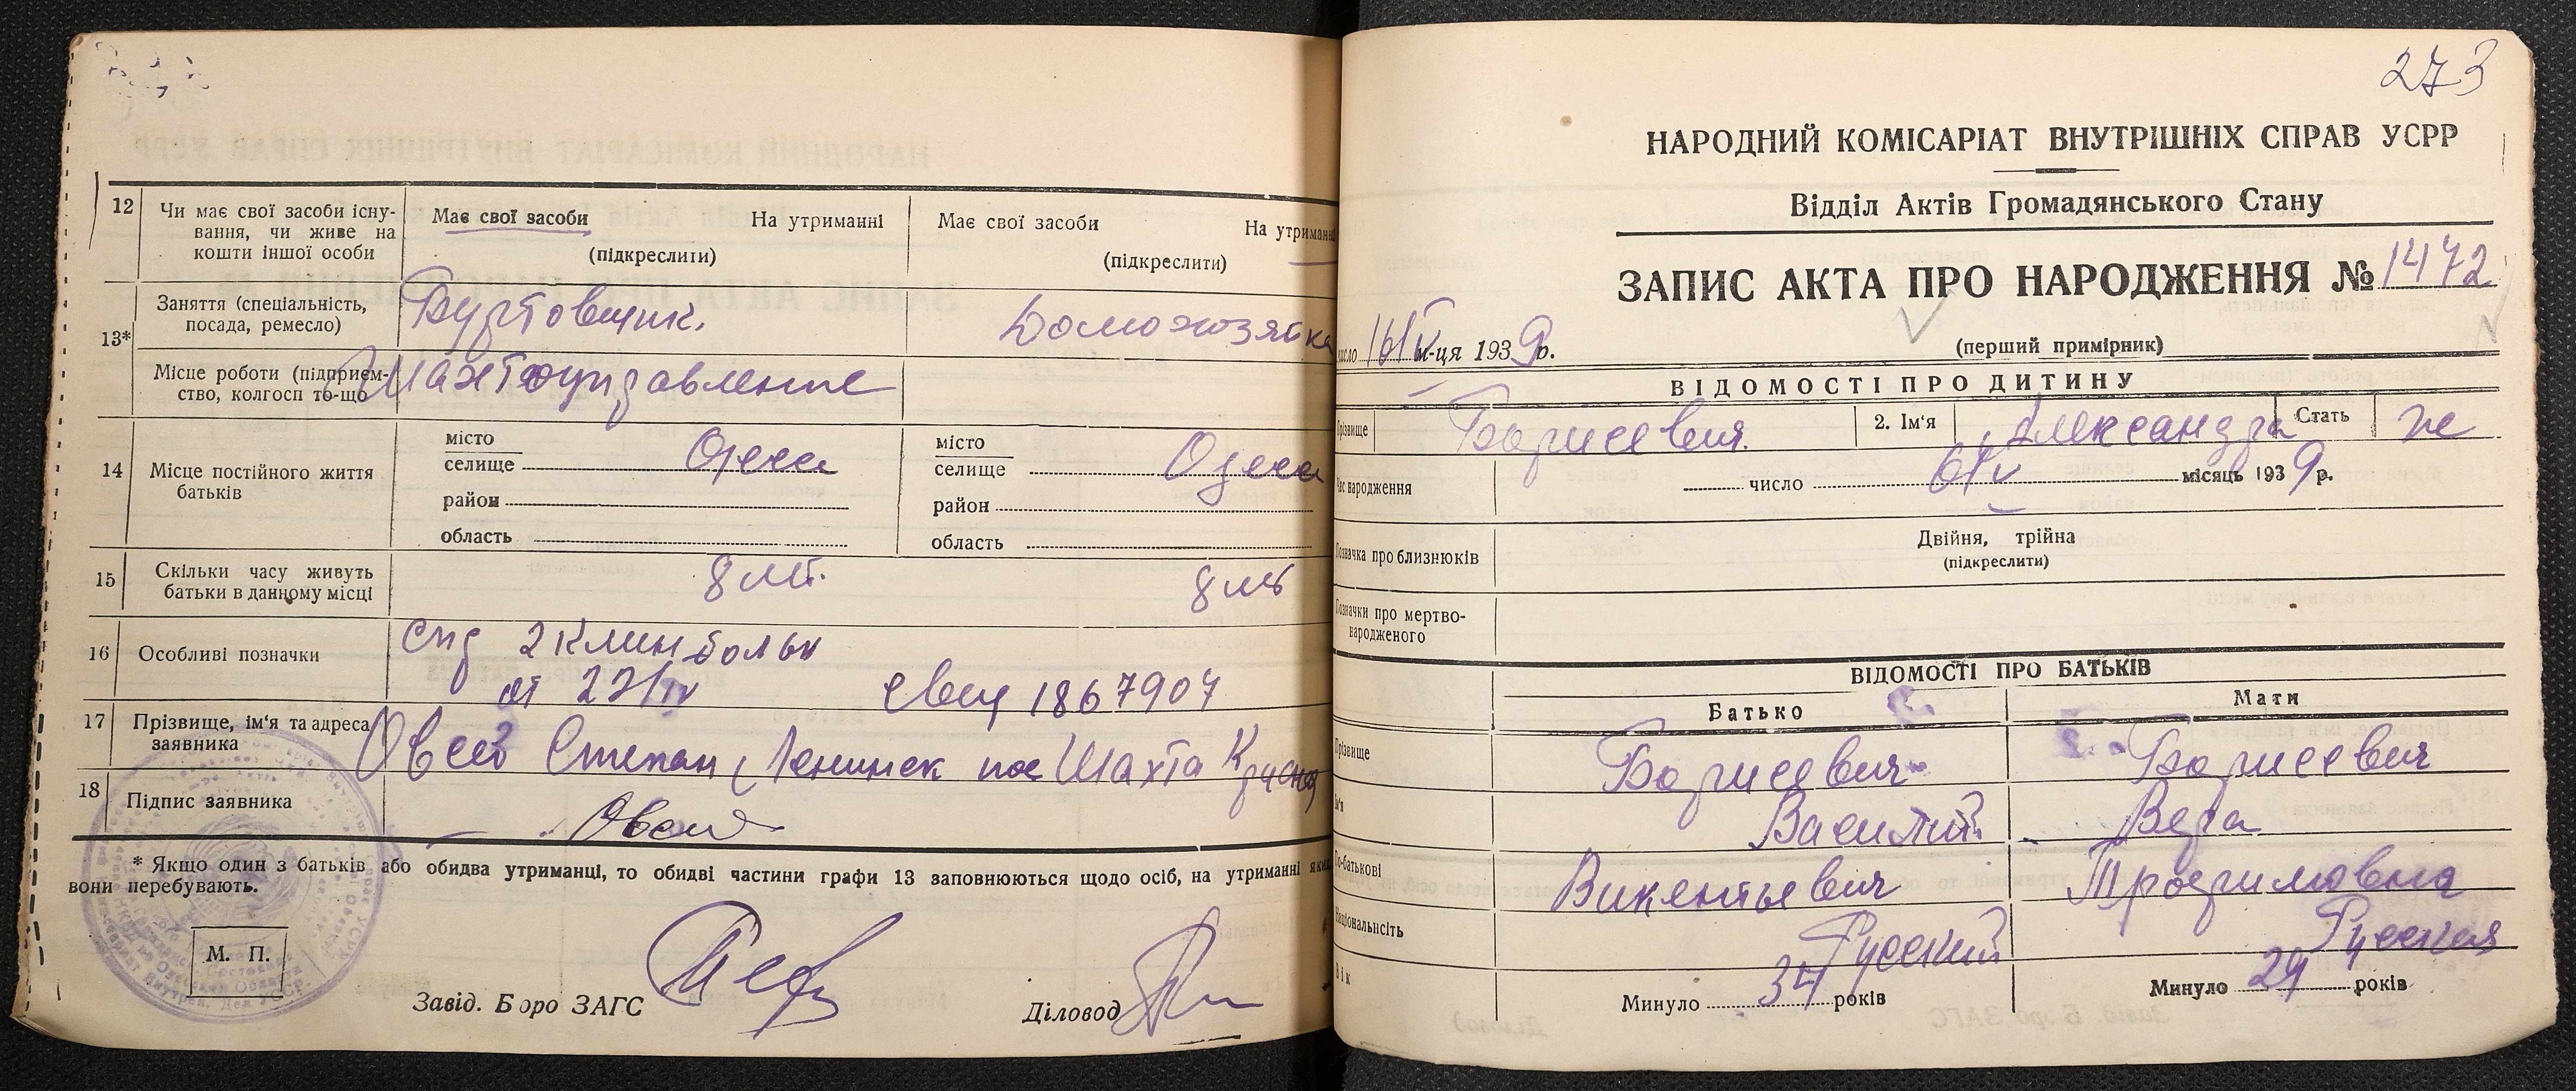 12
Чи має свої засоби існу-
вання, чи живе на
кошти іншої особи
Має свої засоби На утриманні
(підкреслити)
Має свої засоби На утриманні
(підкреслити)
13*
Заняття (спеціальність,
посада, ремесло)
Буртовщик.
Домохозяйка
Місце роботи (підприєм-
ство, колгосп то-що
Шахтоуправление
14
Місце постійного життя
батьків
місто
селище Одесса
район
область
місто
селище Одесса
район
область
15
Скільки часу живуть
батьки в данному місці
8 лет.
8 лет
16
Особливі позначки
спр 2 Клин больн
от 23/IV свид 1867904
17
Прізвище, ім'я та адреса
заявника
Степан Ленинск пос Шахта
18
Підпис заявника
* Якщо один з батьків або обидва утриманці, то обидві частини графи 13 заповнюються щодо осіб, на утриманні яких
вони перебувають.
М. П.
Завід. Бюро ЗАГС
Діловод
273
НАРОДНИЙ КОМІСАРІАТ ВНУТРІШНІХ СПРАВ УСРР
Відділ Актів Громадянського Стану
ЗАПИС АКТА ПРО НАРОДЖЕННЯ № 1472
число 16/V м-ця 1939 р.
(перший примірник)
ВІДОМОСТІ ПРО ДИТИНУ
Прізвище Борисевич. 2. Ім'я Александра Стать ж
Час народження
число 6/IV місяць 1939 р.
Позначка про близнюків
Двійня, трійна
(підкреслити)
Позначки про мертво-
народженого
ВІДОМОСТІ ПРО БАТЬКІВ
Батько Мати
Прізвище Борисевич Борисевич
Ім'я Василий Вера
По-батькові Викентьевич Трофимовна
Національність Русский Русская
Вік Минуло 34 років Минуло 29 років